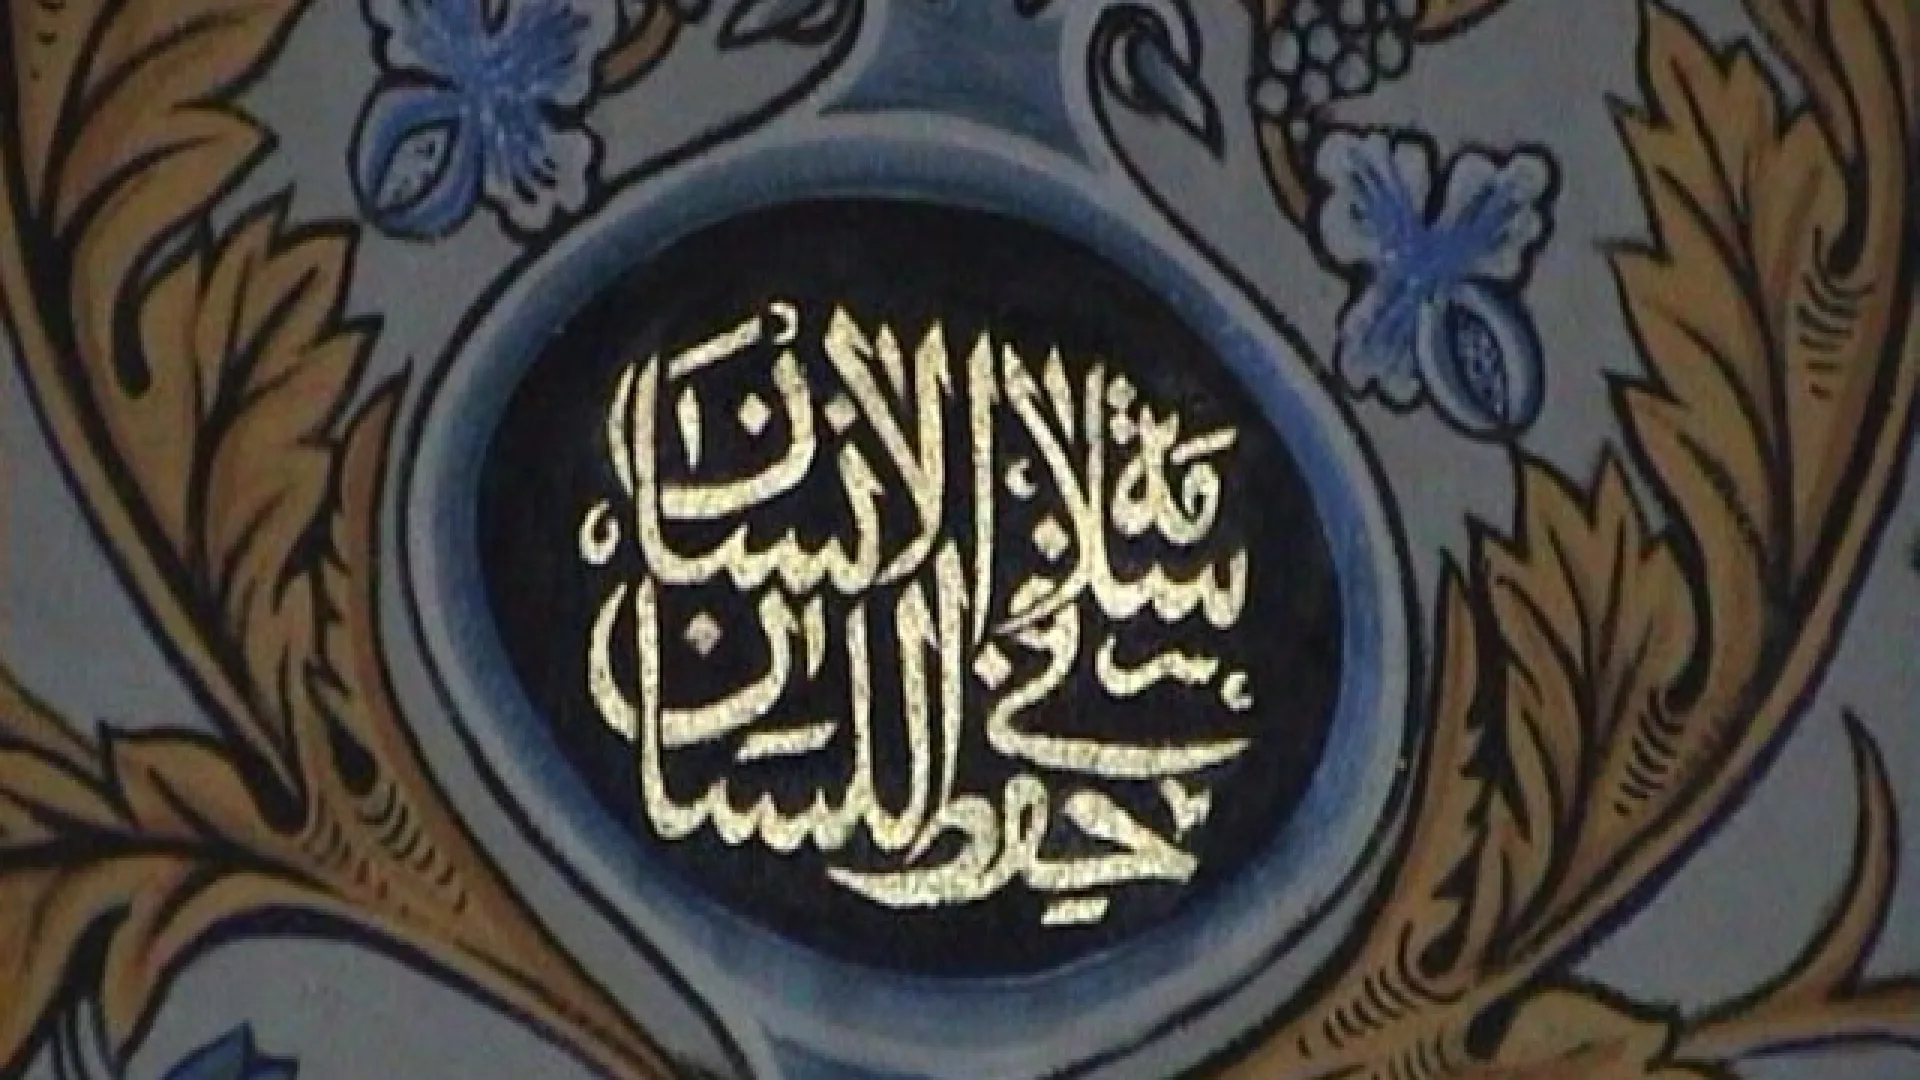 سلامة الانسان
في حفظ اللسان